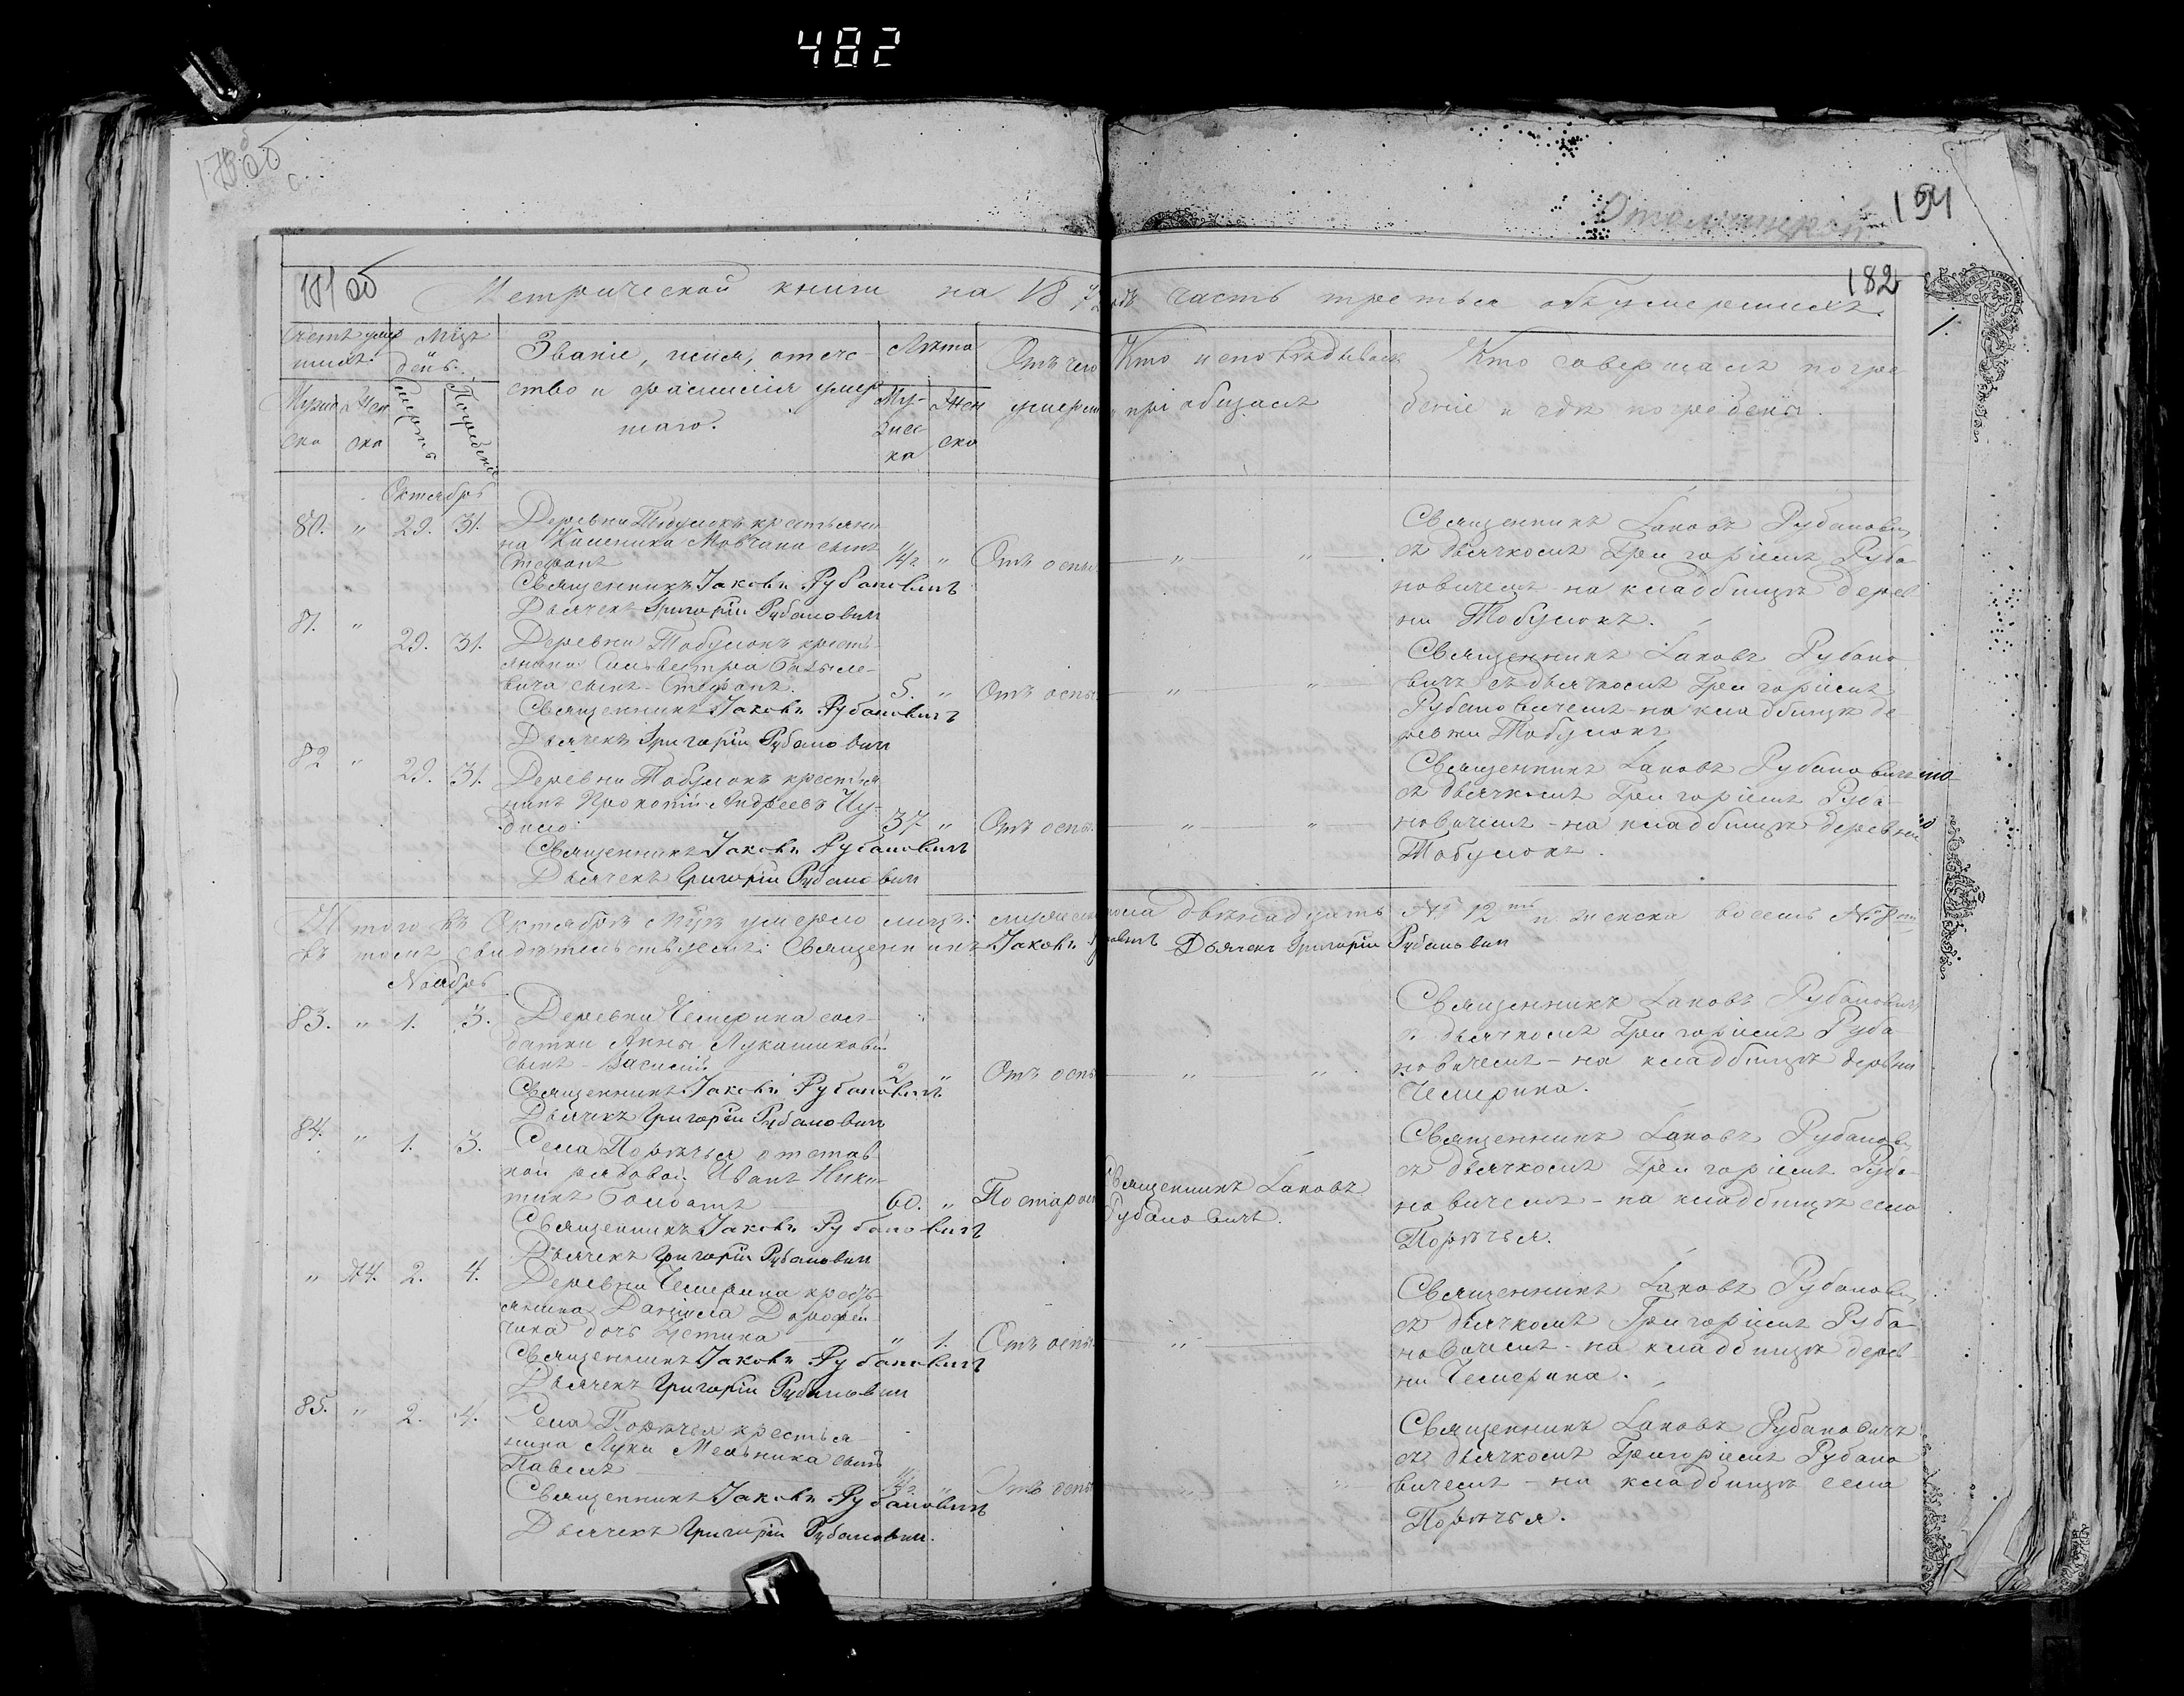 482
194
182
Метрической книги на 187 годъ часть третья объ умершихъ.
Счетъ умер
шихъ.
Мѣцъ
день.
Мужеска Жен
ска
Смерть
Погребенія
Званіе, имя, отече-
ство и фамилія умер
шаго.
Лѣта
Му-
жес-
ка
Жен
ска
Отъ чего
умерли
Кто исповѣдывалъ
и пріобщалъ
Кто совершалъ погре
беніе и гдѣ погребены.
Октябрь
80. " 29. 31. Деревни Тобулокъ крестьяни
на Климика Мовчана сынъ
Стефанъ 1/2 " Отъ оспы " "
Священникъ Іаковъ Рубановичъ
Дьячекъ Григорій Рубановичъ
Священникъ Іаковъ Рубанови
съ дьячкомъ Григоріемъ Руба
новичемъ на кладбищѣ дерев
ни Тобулокъ.
81. " 29. 31. Деревни Тобулокъ кресть-
янина Сильвестра
вича сынъ - Стефанъ. 5. " Отъ оспы " "
Священникъ Іаковъ Рубановичъ
Дьячекъ Григорій Рубановичъ
Священникъ Іаковъ Рубано
вичъ съ дьячкомъ Григоріемъ
Рубановичемъ - на кладбищѣ де-
ревни Тобулокъ
82 " 29. 31. Деревни Тобулокъ крестья
нинъ Прокопій Андреевъ
37 " Отъ оспы. " "
Священникъ Іаковъ Рубановичъ
Дьячекъ Григорій Рубановичъ
Священникъ Іаковъ Рубановичъ
съ дьячкомъ Григоріемъ Руба-
новичемъ - на кладбищѣ деревни
Тобулокъ.
Итого въ Октябрѣ мцѣ умерло лицъ: мужеска пола двѣнадцать № 12 и женска восемь № 8
въ томъ свидѣтельствуемъ: Священникъ Іаковъ Рубановичъ Дьячекъ Григорій Рубановичъ
Ноябрь
83. " 1. 3. Деревни Чемерина сол-
датки Анны Лукашиковой
сынъ - Василій 2 " Отъ оспы " "
Священникъ Іаковъ Рубановичъ
Дьячекъ Григорій Рубановичъ
Священникъ Іаковъ Рубановичъ
съ дьячкомъ Григоріемъ Руба
новичемъ - на кладбищѣ деревни
Чемерина.
84. " 1. 3. Села Порѣчья отстав
ной рядовой Иванъ Ники-
тинъ Солдатъ 60. " По старости
Священникъ Іаковъ
Рубановичъ.
Священникъ Іаковъ Рубановичъ
Дьячекъ Григорій Рубановичъ
Священникъ Іаковъ Рубанови
съ дьячкомъ Григоріемъ Руба-
новичемъ - на кладбищѣ села
Порѣчья.
" 74. 2. 4. Деревни Чемерина кресть-
янина Даніила Дорофей-
чика дочь Устина " 1. Отъ оспы. "
Священникъ Іаковъ Рубановичъ
Дьячекъ Григорій Рубановичъ
Священникъ Іаковъ Рубанови
съ дьячкомъ Григоріемъ Руба
новичемъ - на кладбищѣ дерев-
ни Чемерина.
85. " 2. 4. Села Порѣчья крестья-
нина Луки Мельника сынъ
Павелъ 1/2 " Отъ оспы "
Священникъ Іаковъ Рубановичъ
Дьячекъ Григорій Рубановичъ.
Священникъ Іаковъ Рубановичъ
съ дьячкомъ Григоріемъ Рубано
вичемъ - на кладбищѣ села
Порѣчья.